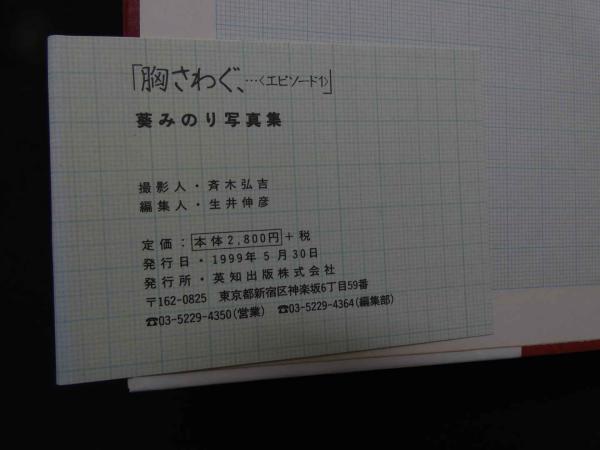 「胸さわぐ、…〈エピソード1〉」
葵みのり写真集
撮影人・斉木弘吉
編集人・生井伸彦
定価：本体2,800円＋税
発行日・1999年5月30日
発行所・英知出版株式会社
〒162-0825 東京都新宿区神楽坂6丁目59番
☎03-5229-4350(営業) ☎03-5229-4364(編集部)